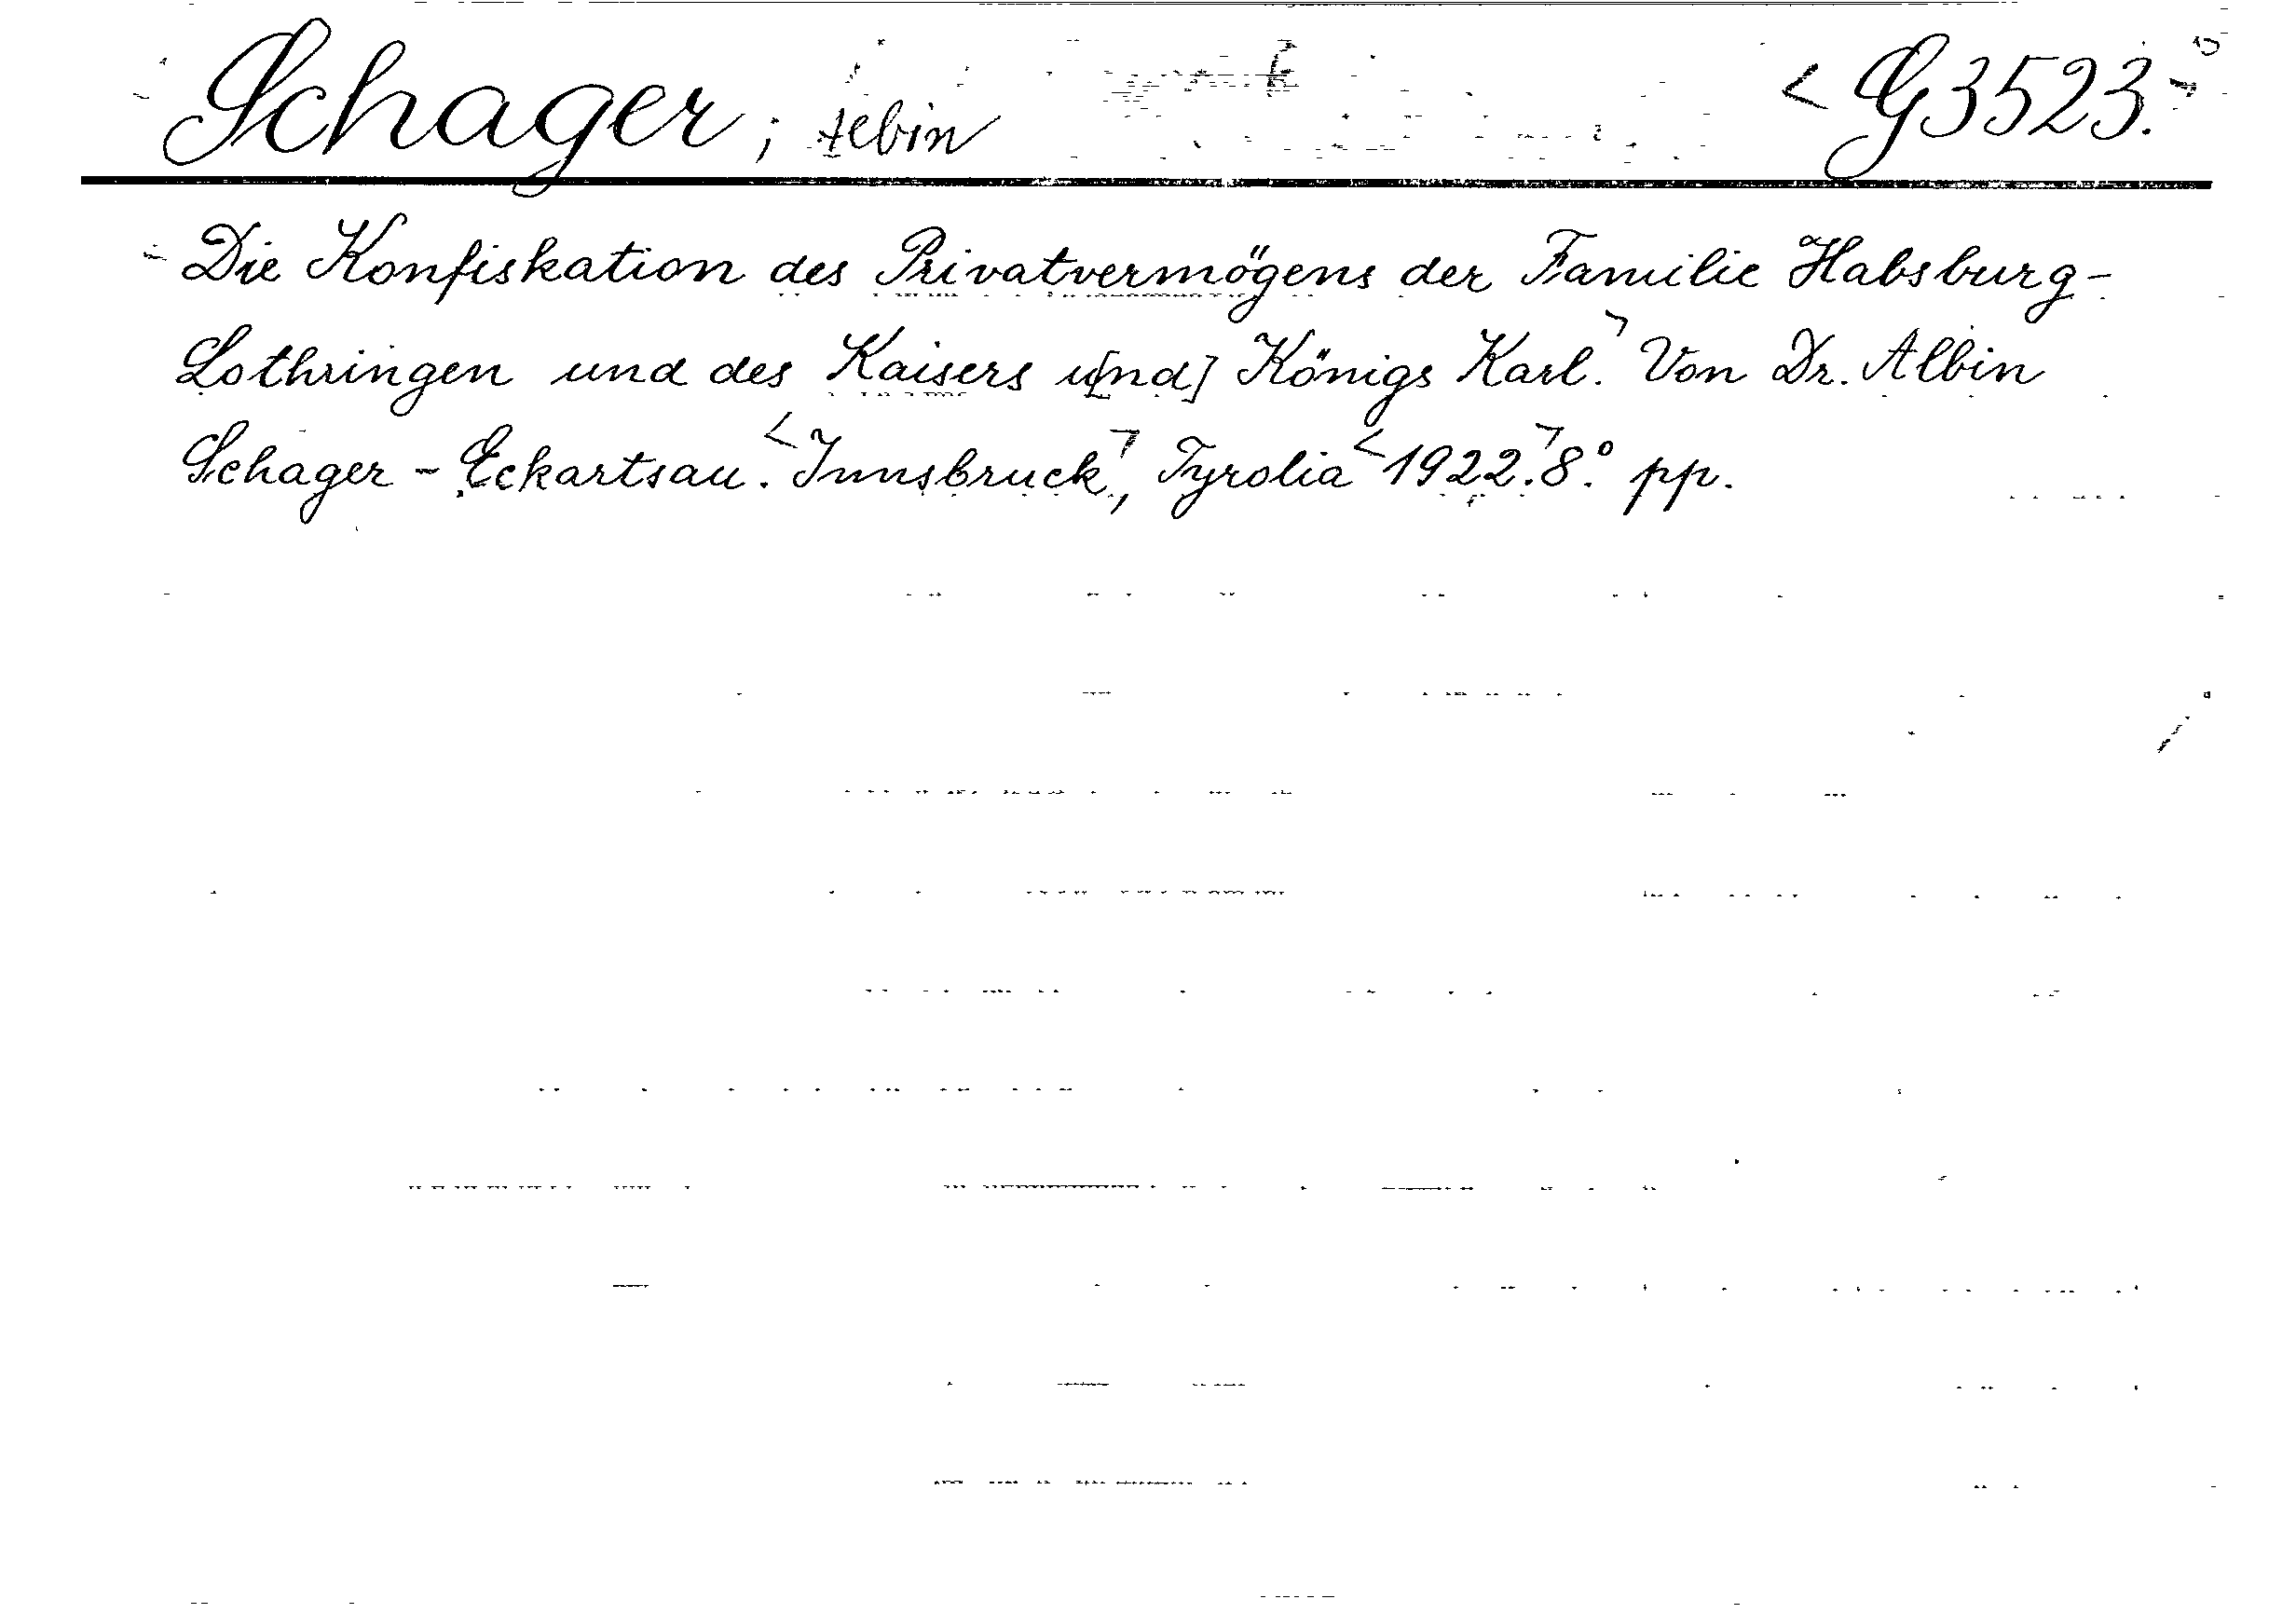 Schager, Albin <G3523.>
Die Konfiskation des Privatvermögens der Familie Habsburg-
Lothringen und des Kaisers u[nd] Königs Karl.> Von Dr. Albin
Schager-Eckartsau. <Innsbruck>, Tyrolia <1922.> 8.° pp.